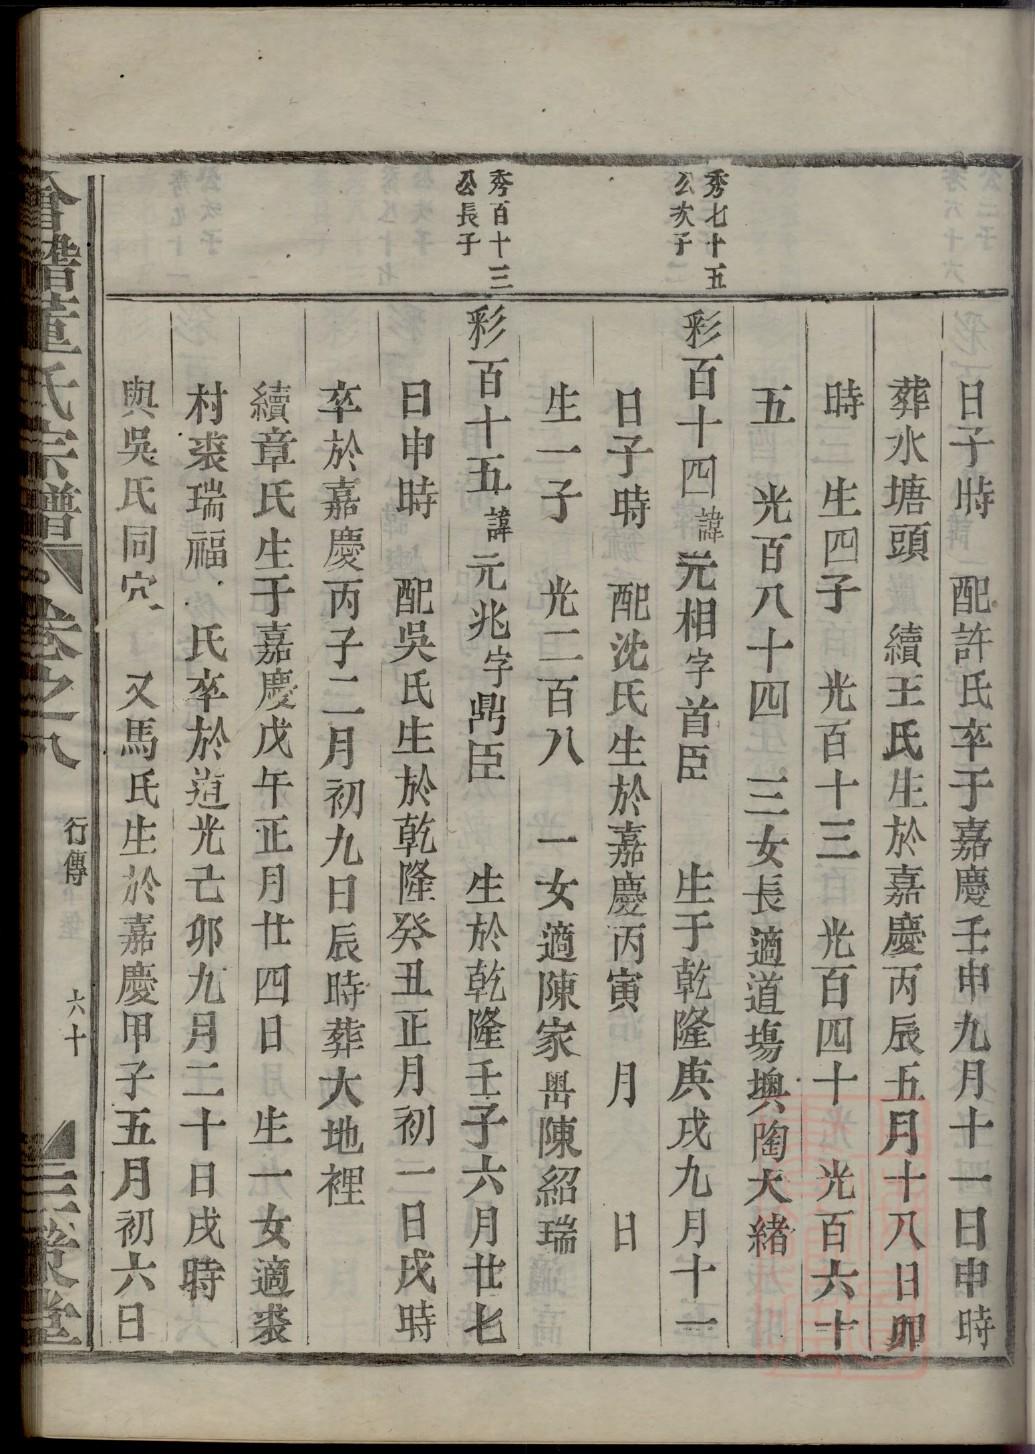 日子時　配許氏卒于嘉慶壬申九月十一日申時
葬水塘頭　續王氏生於嘉慶丙辰五月十八日卯
時　生四子　光百十三　光百四十　光百六十
五　光百八十四　三女長適道塲墺陶大緒
秀七十五
公次子
彩百十四諱元相字首臣　生于乾隆庚戌九月十一
日子時　配沈氏生於嘉慶丙寅　月　日
生一子　光二百八　一女適陳家嶴陳紹瑞
秀百十三
公長子
彩百十五諱元兆字鼎臣　生於乾隆壬子六月廿七
日申時　配吳氏生於乾隆癸丑正月初一日戌時
卒於嘉慶丙子二月初九日辰時葬大地裡
續章氏生于嘉慶戊午正月廿四日　生一女適裘
村裘瑞福　氏卒於道光己卯九月二十日戌時
與吳氏同穴　又馬氏生於嘉慶甲子五月初六日
會稽董氏宗譜　卷之八　行傳　六十　三策堂